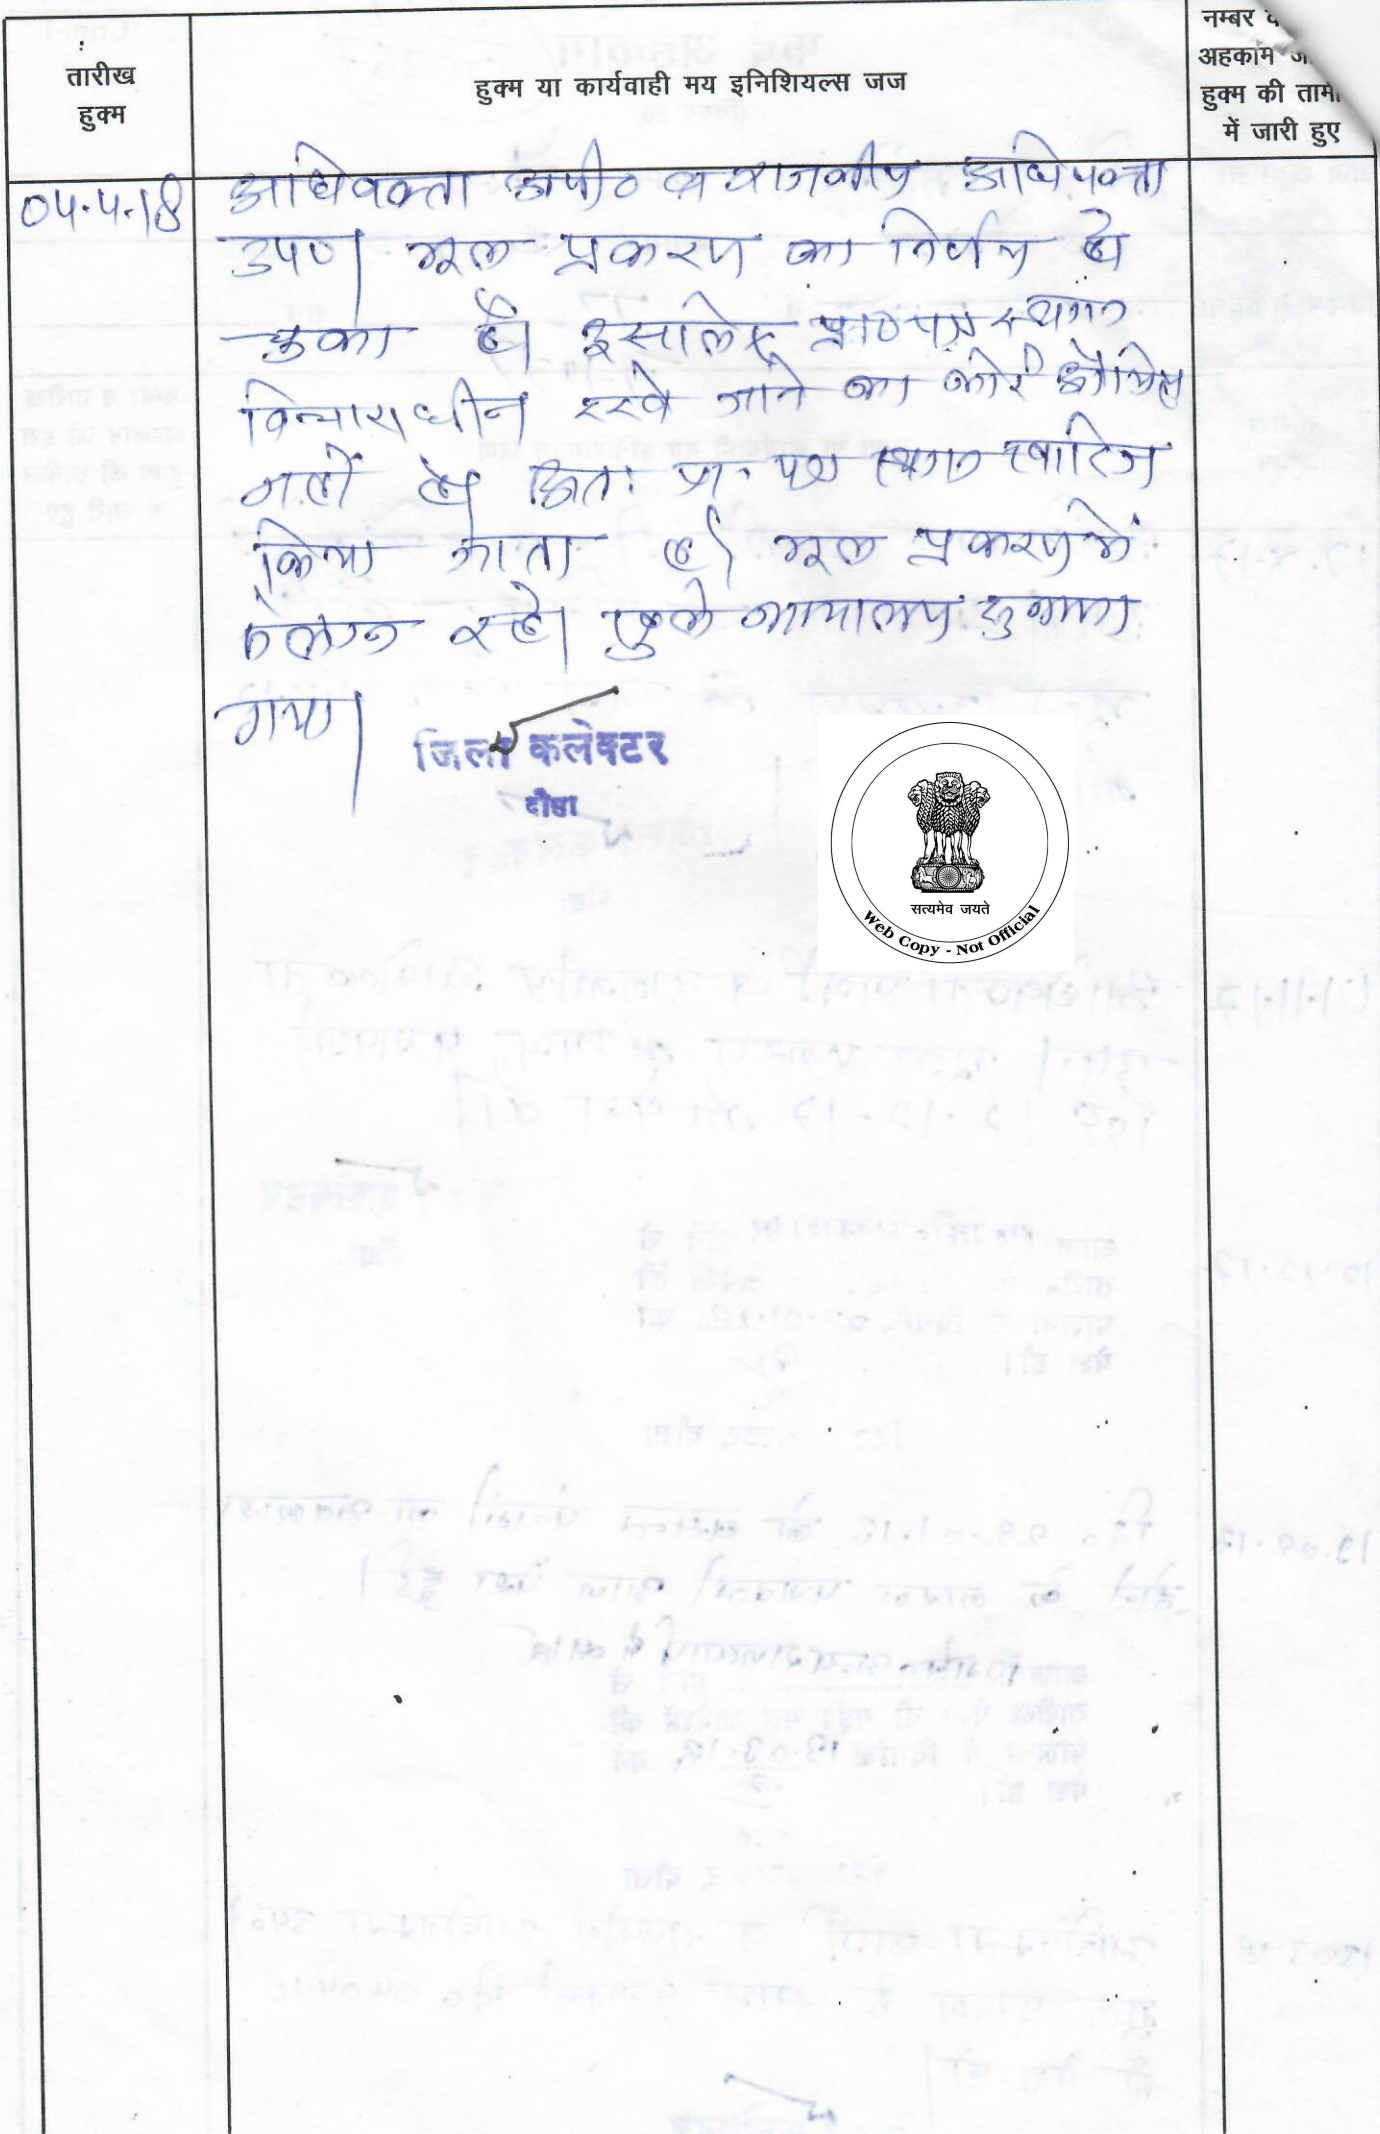 तारीख
हुक्म
हुक्म या कार्यवाही मय इनिशियल्स जज
नम्बर व
अहकाम ज
हुक्म की तामी
में जारी हुए
04.4.18
अधिवक्ता अपी० व राजकीय अधिवक्ता
उप०। मूल प्रकरण का निर्णय हो
चुका है। इसलिए प्रा० पत्र स्थगन
विचाराधीन रखे जाने का कोई औचित्य
नहीं है। अतः प्रा. पत्र स्थगन खारिज
किया जाता है। मूल प्रकरण में
संलग्न रहे। खुले न्यायालय सुनाया
गया।
जिला कलेक्टर
दौसा
सत्यमेव जयते
Web Copy - Not Official